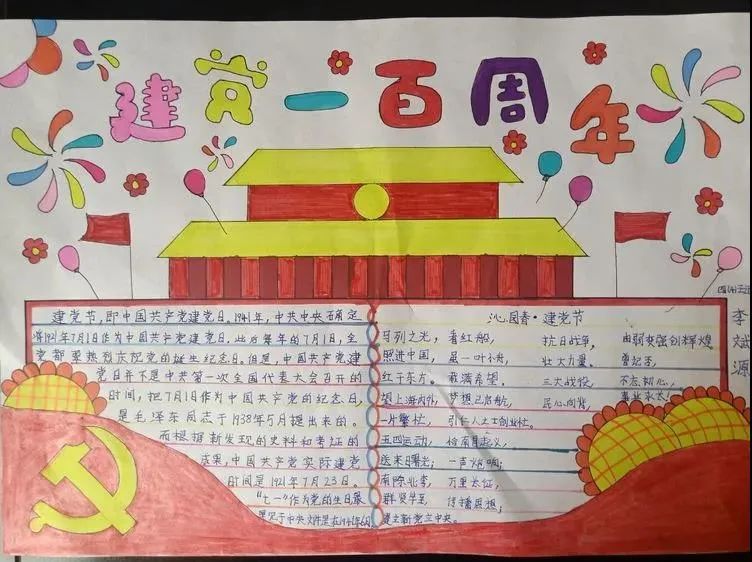 建党一百周年
建党节,即中国共产党建党日,1941年,中共中央确定
将1921年7月1日作为中国共产党建党日,此后每年的7月1日,全
党都要热烈庆祝党的诞生纪念日。但是,中国共产党建
党日并不是中共第一次全国代表大会召开的
时间,把7月1日作为中国共产党的纪念日,
是毛泽东同志于1938年5月提出来的。
而根据新发现的史料和考证的
成果,中国共产党实际建党
时间是1921年7月23日。
“七一”作为党的生日最
早见于中央文件是在1941年6月
沁园春·建党节
马列之光, 看红船, 抗日战争, 由弱变强创辉煌
照进中国, 虽一叶小舟, 壮大力量。 曾记否,
红于东方。 载满希望。 三大战役, 不忘初心,
望上海内外, 梦想已启航, 民心向背,
一片繁忙, 引仁人志士创业忙。
五四运动, 恰南昌起义,
送来曙光; 一声炮响;
南陈北李, 万里长征,
群贤毕至, 传播思想;
建立新党立中央。
李斌源